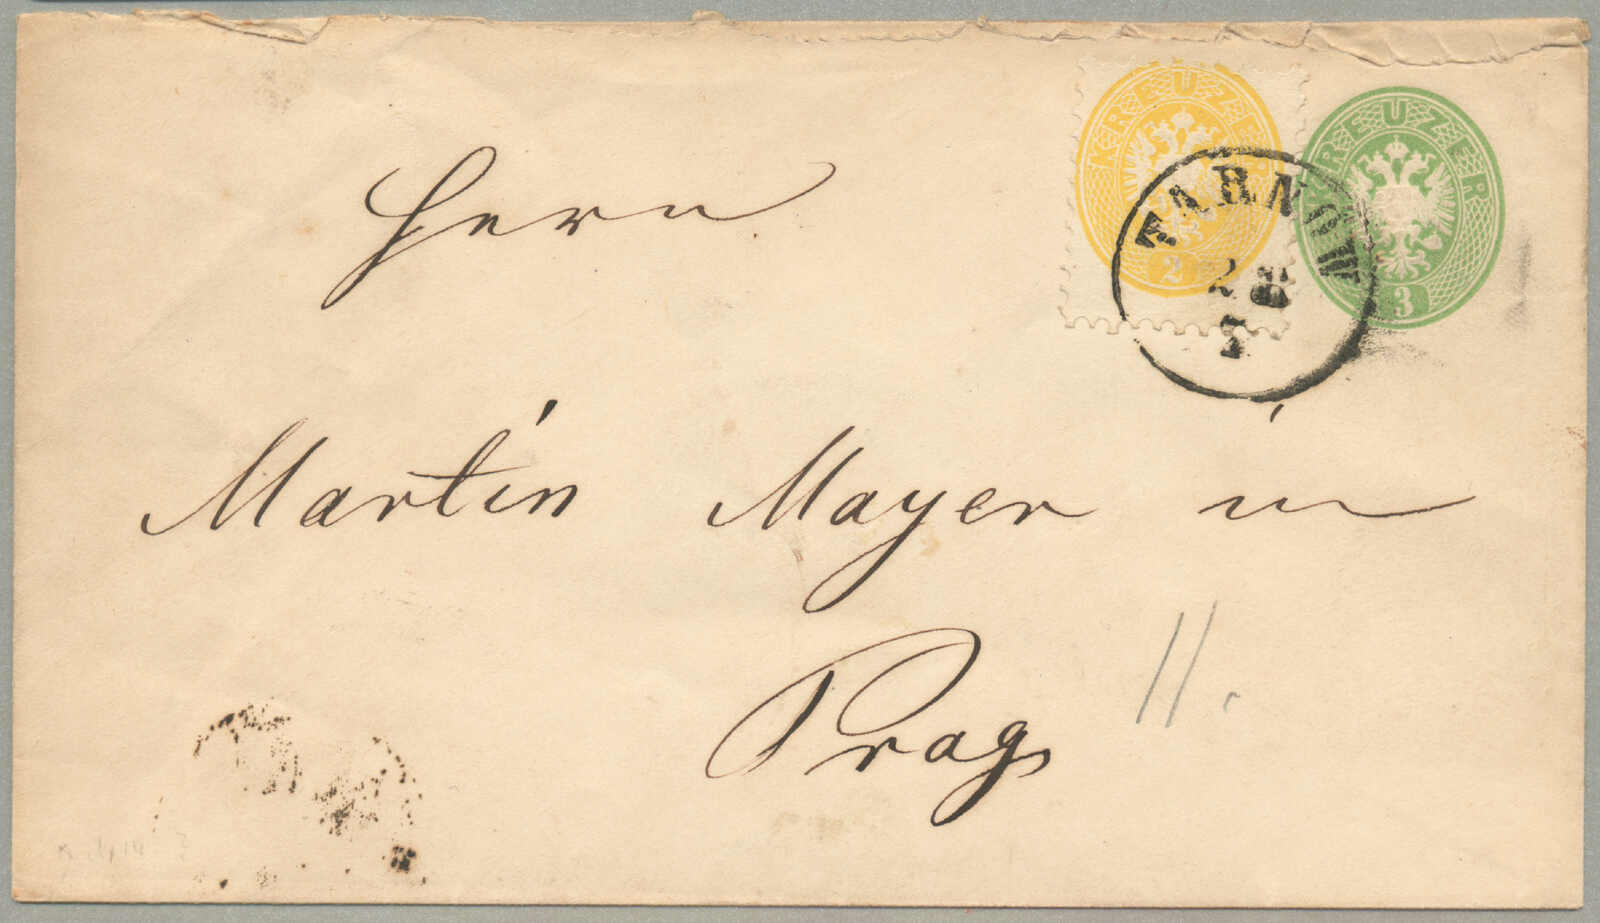 KREUZER
2
KREUZER
3
TARNOW
2 8
7
Herrn
Martin Mayer in
Prag
II.